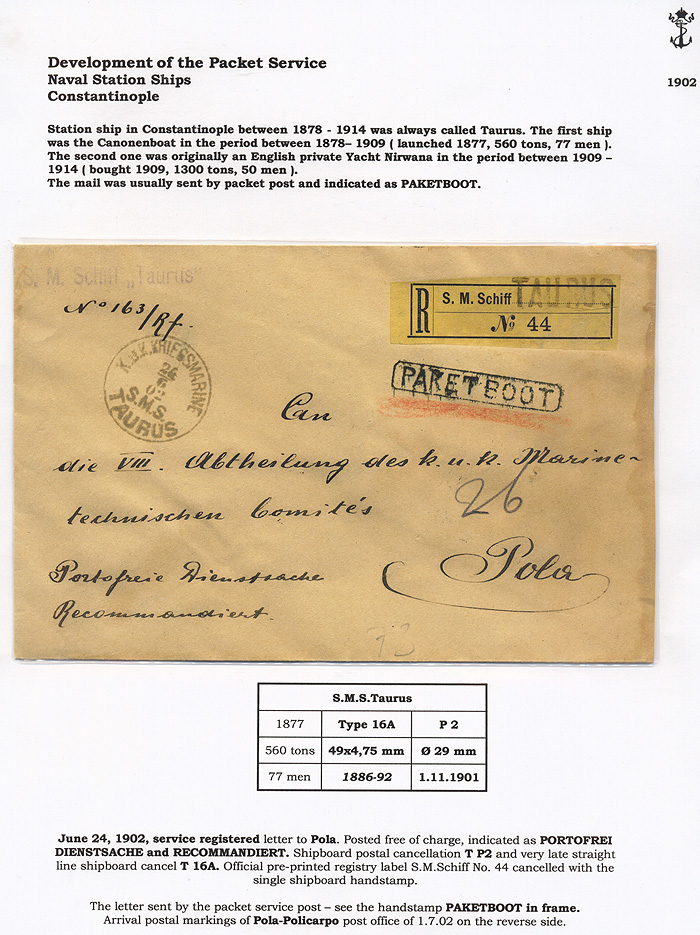 1902
Development of the Packet Service
Naval Station Ships
Constantinople
Station ship in Constantinople between 1878 - 1914 was always called Taurus. The first ship
was the Canonenboat in the period between 1878– 1909 ( launched 1877, 560 tons, 77 men ).
The second one was originally an English private Yacht Nirwana in the period between 1909 –
1914 ( bought 1909, 1300 tons, 50 men ).
The mail was usually sent by packet post and indicated as PAKETBOOT.
S. M. Schiff „Taurus"
No 163/Rf.
R S. M. Schiff TAURUS
№ 44
K.u.K. KRIEGSMARINE
24
6
02
S.M.S.
TAURUS
PAKETBOOT
An
die VIII. Abtheilung des k. u. k. Marine-
technischen Comités
26
Pola
Portofreie Dienstsache
Recommandiert.
73
S.M.S.Taurus
1877 Type 16A P 2
560 tons 49x4,75 mm Ø 29 mm
77 men 1886-92 1.11.1901
June 24, 1902, service registered letter to Pola. Posted free of charge, indicated as PORTOFREI
DIENSTSACHE and RECOMMANDIERT. Shipboard postal cancellation T P2 and very late straight
line shipboard cancel T 16A. Official pre-printed registry label S.M.Schiff No. 44 cancelled with the
single shipboard handstamp.
The letter sent by the packet service post – see the handstamp PAKETBOOT in frame.
Arrival postal markings of Pola-Policarpo post office of 1.7.02 on the reverse side.